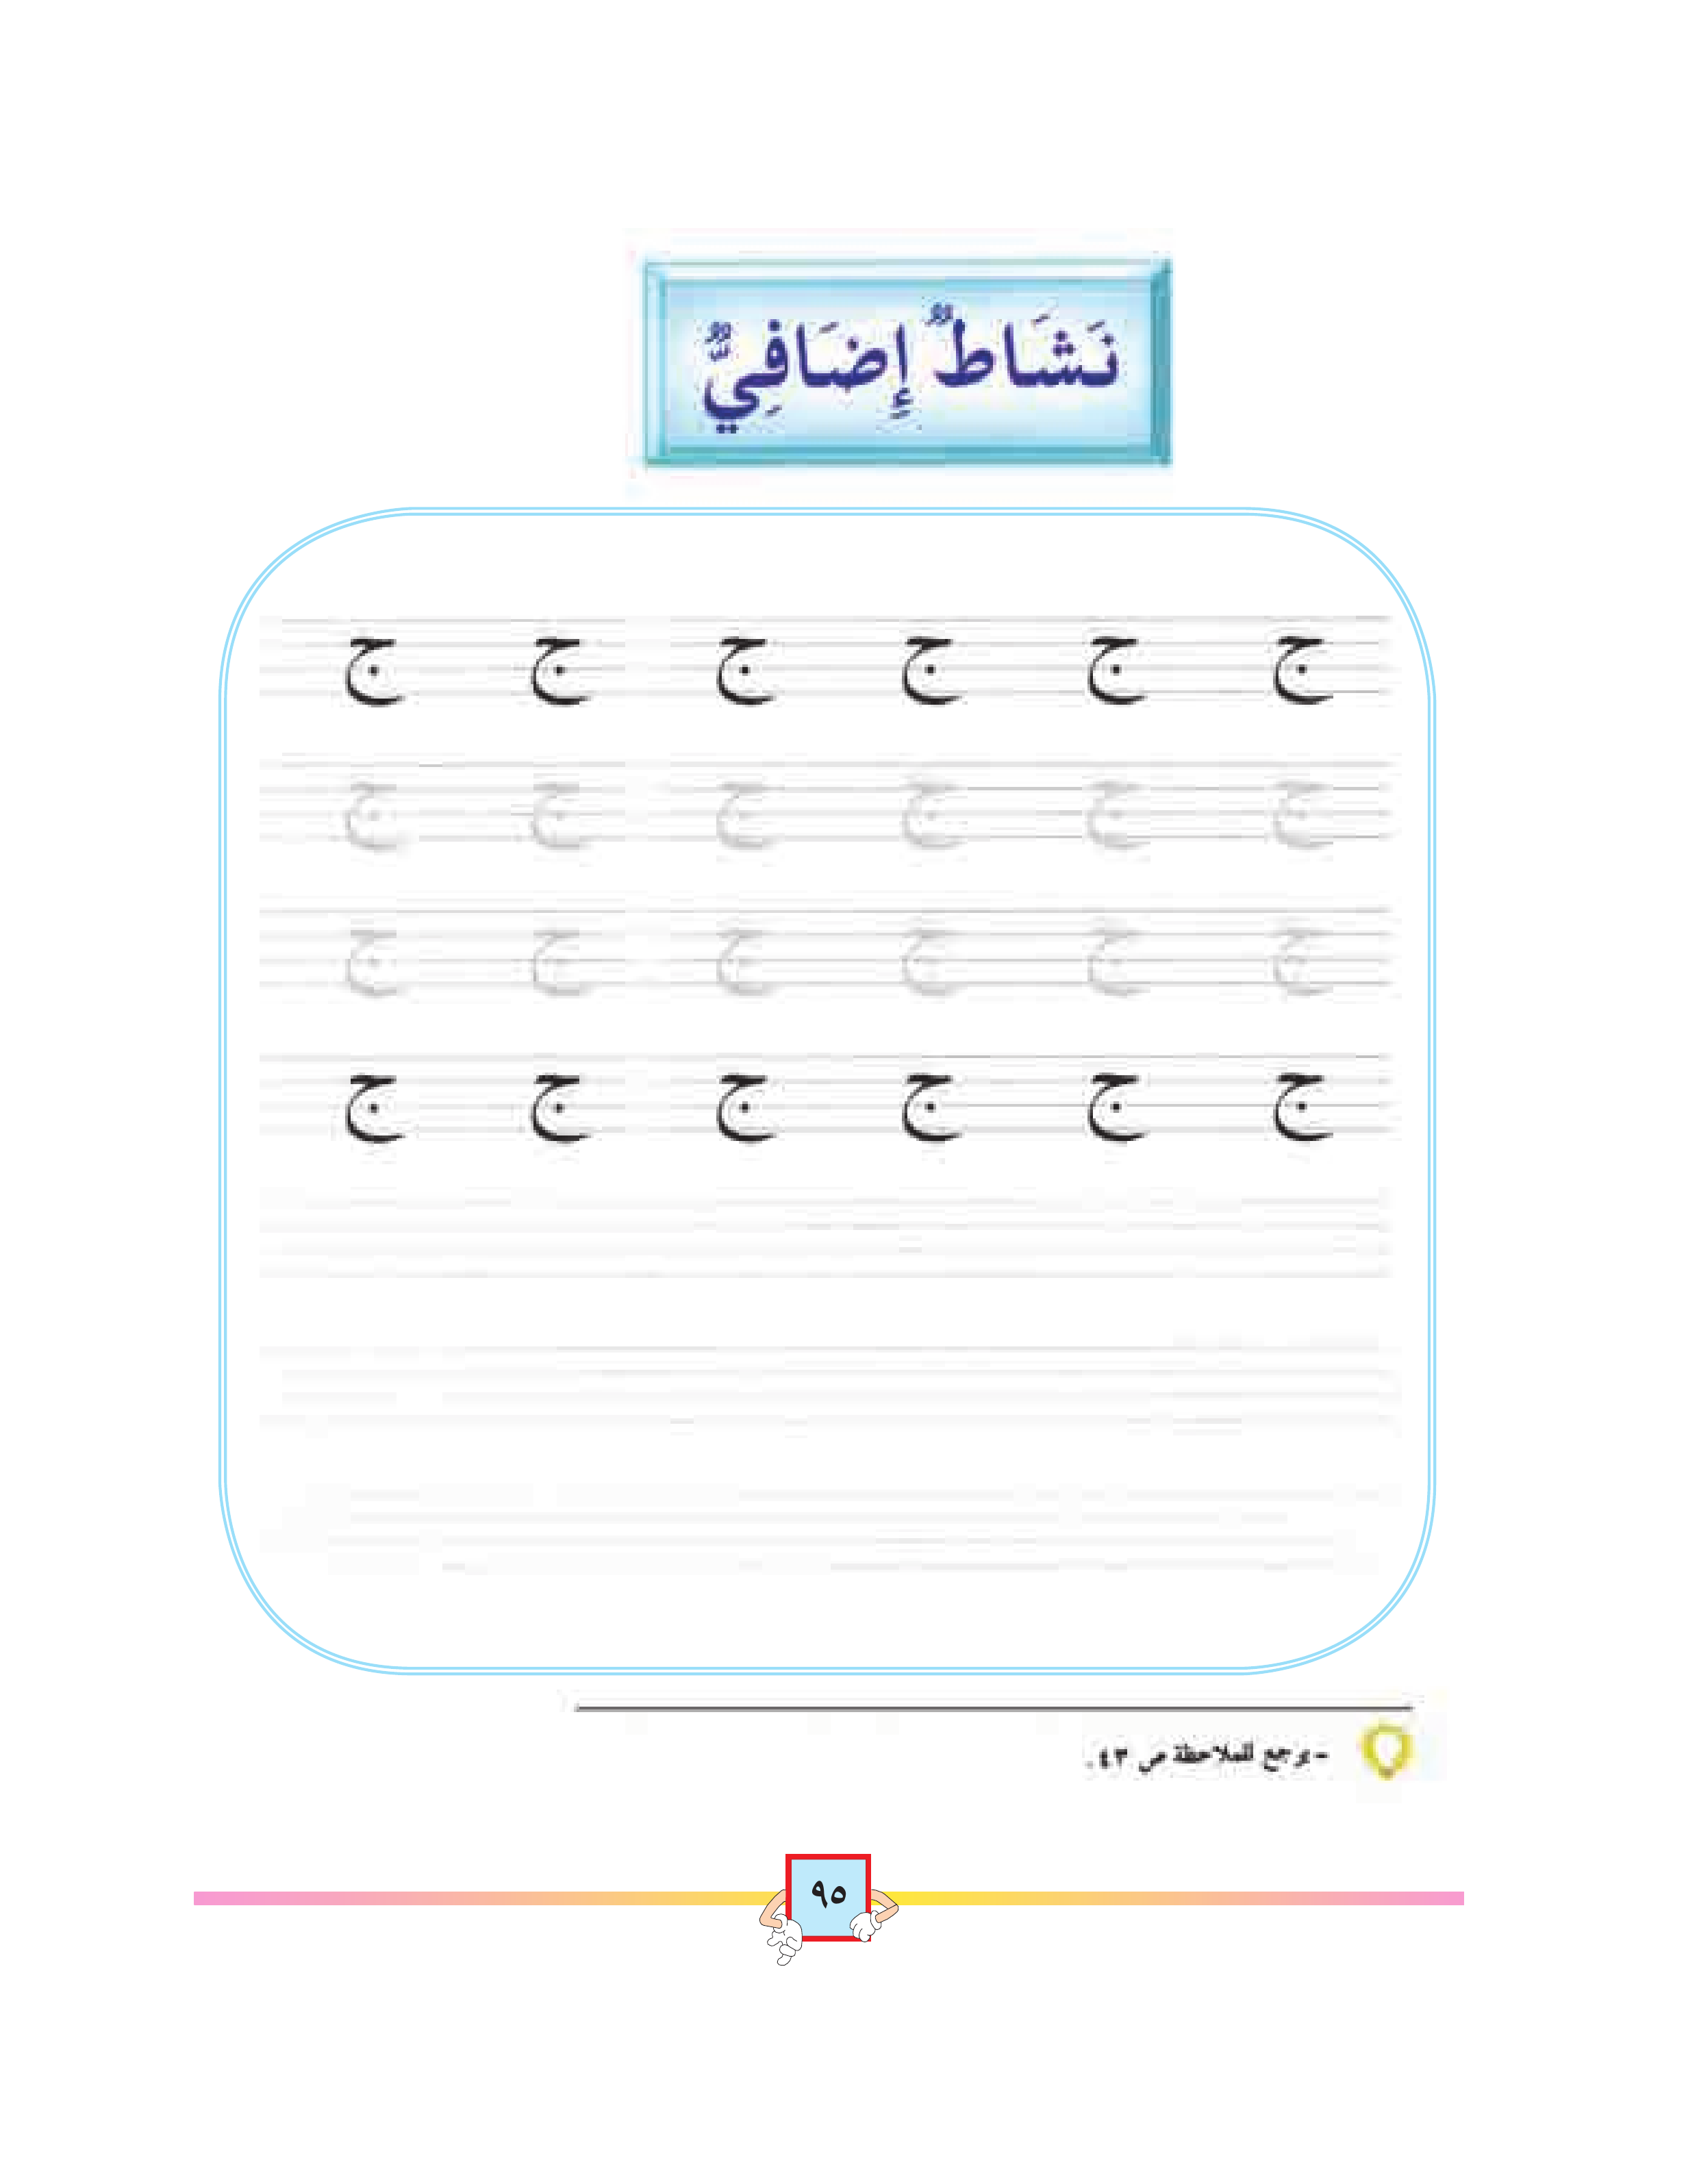 نَشَاطٌ إِضَافِيٌّ
ج ج ج ج ج ج
ج ج ج ج ج ج
ج ج ج ج ج ج
ج ج ج ج ج ج
- يرجع للملاحظة ص ٤٣.
٩٥